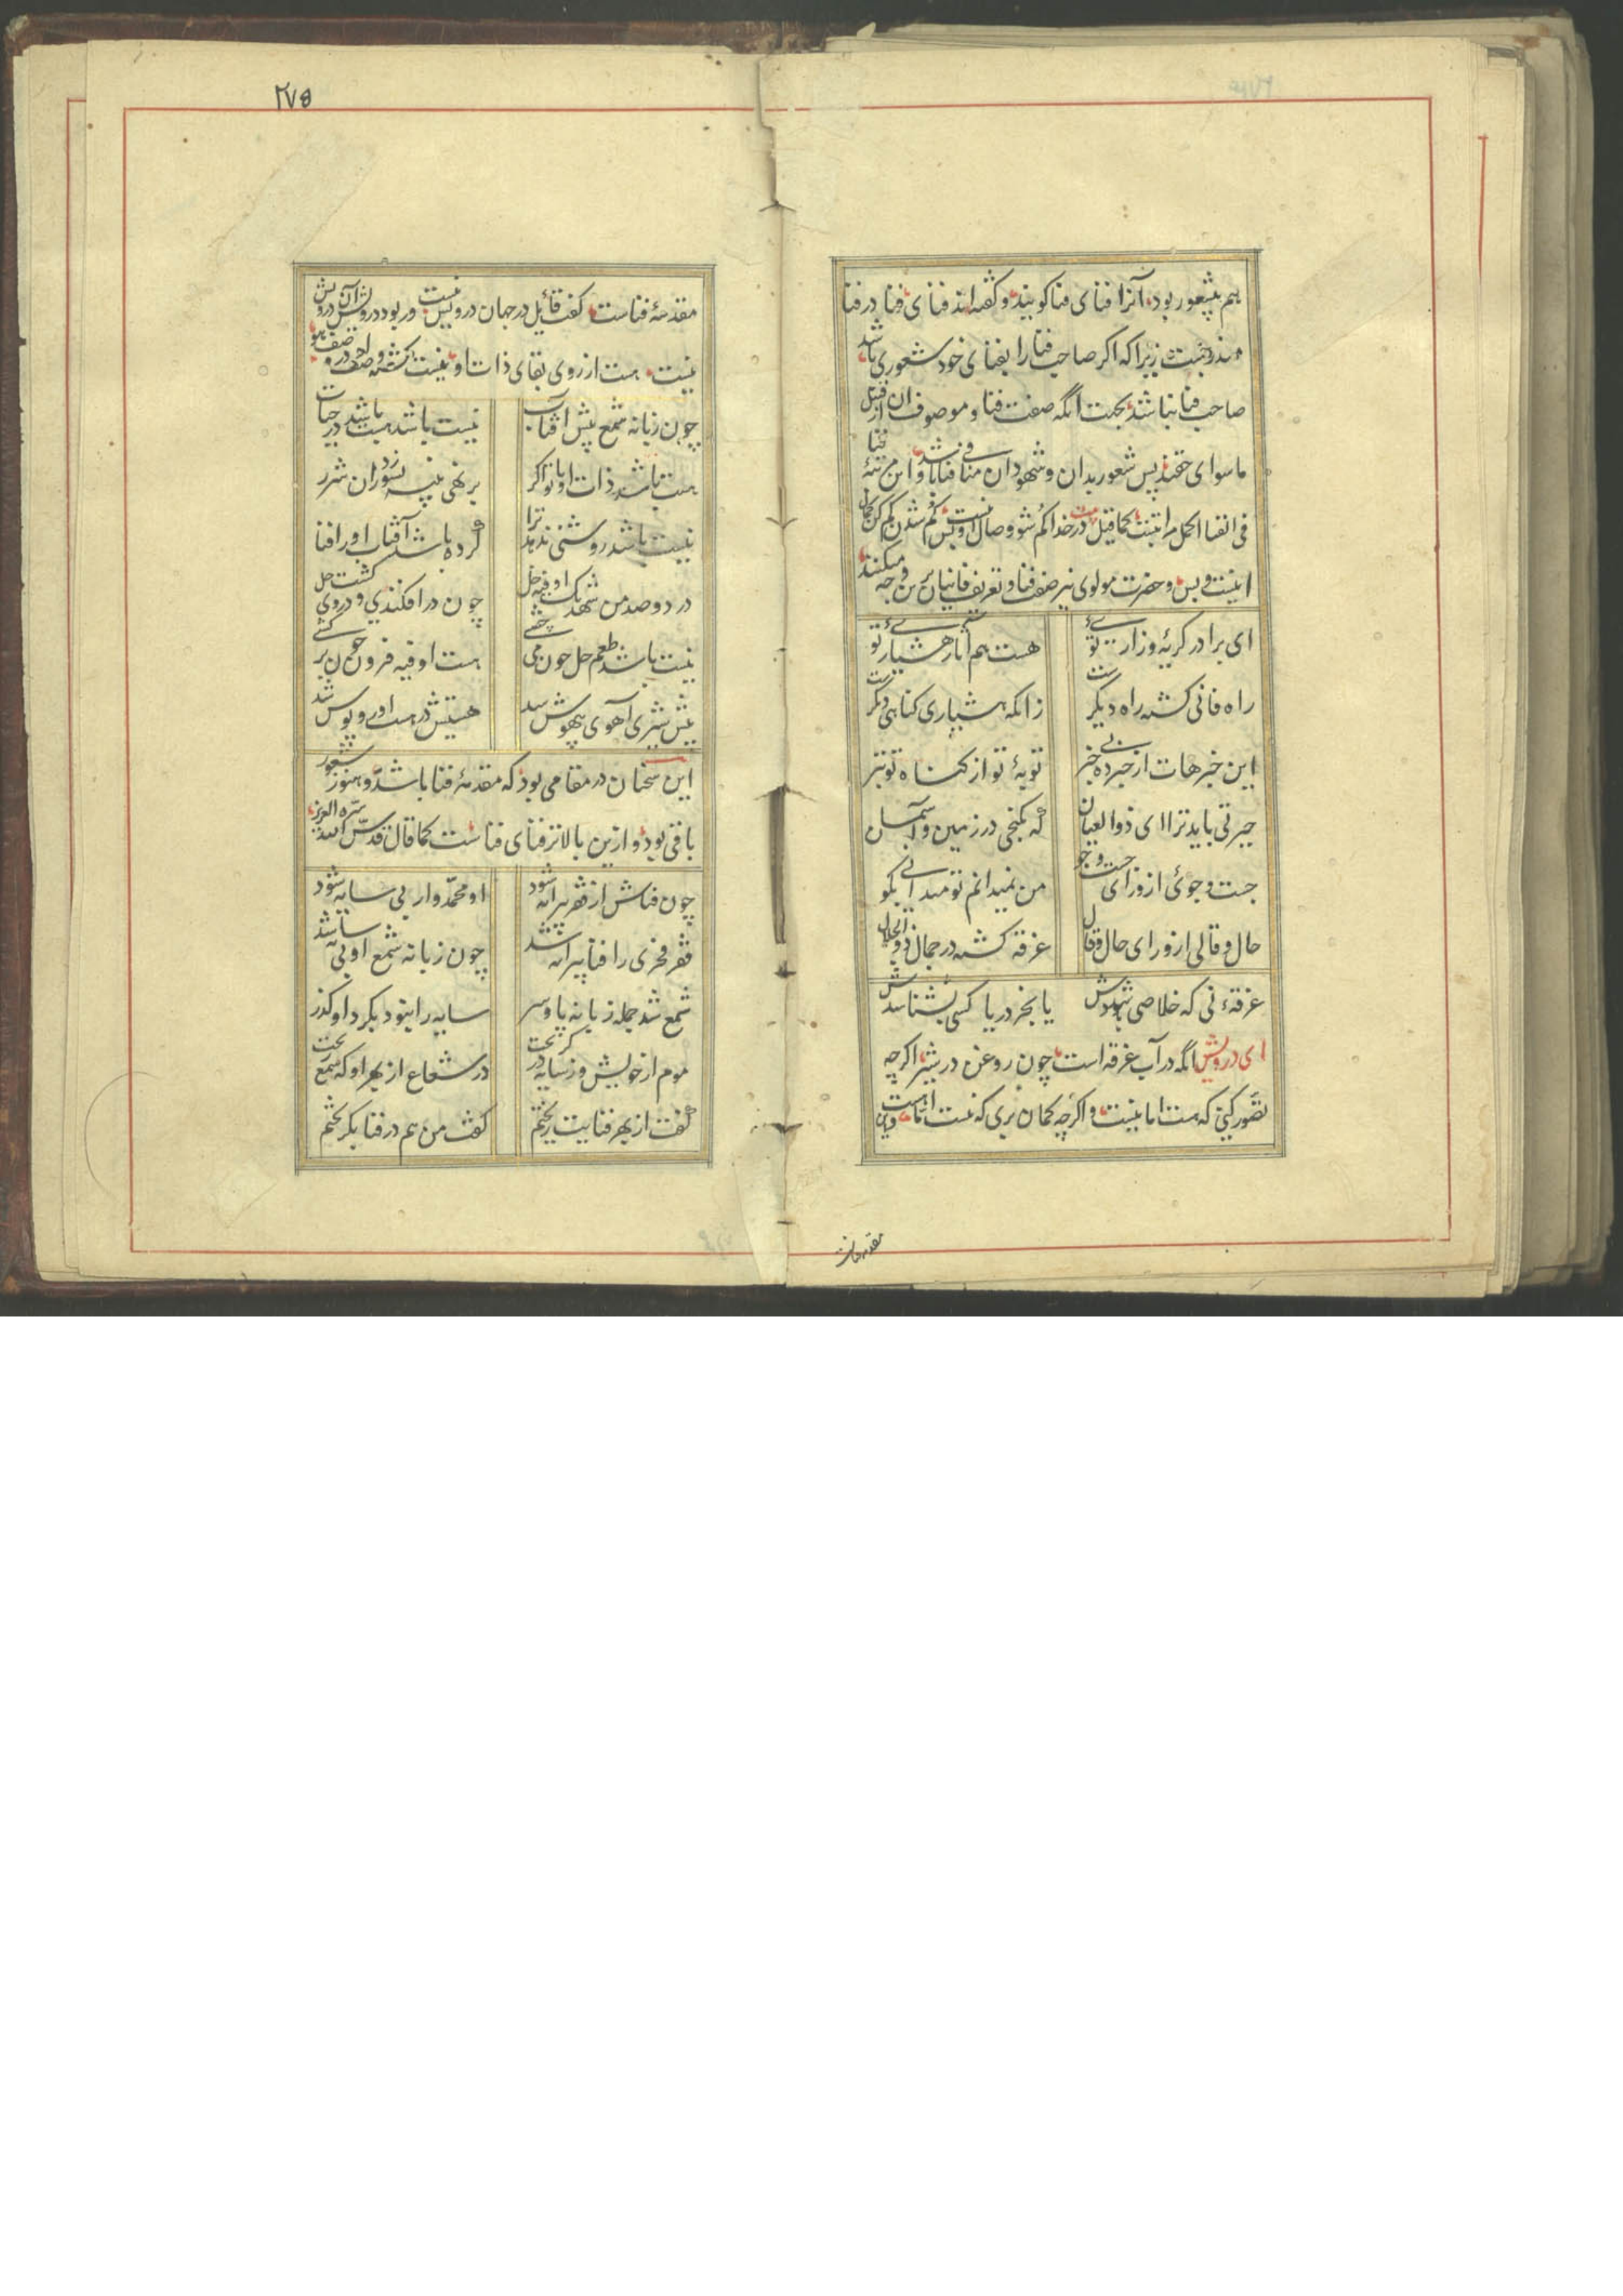 هم بیشعور بود آنرا فنای فنا کویند و کفته اند فنای فنا در فنا
مندرجست زیرا که اکر صاحب فنا را بفنای خود شعوری باشد
صاحب فنا نباشد بجهت انکه صفت فنا و موصوف ان از قبیل
ماسوای حقند پس شعور بدان و شهود ان منافی فنا باشد و این مرتبهٔ فنا
فی الفنا اکمل مراتبست کما قیل در خدا کم شو وصال اینست و بس کم شدن کم کن کمال
اینست و بس و حضرت مولوی نیز صفت فنا و تعریف فانیان برین وجه میکنند
ای برادر کریهٔ و زاریٔ تو هست هم آثار هشیاریٔ تو
راه فانی کشته راه دیکرست زانکه هشیاری کناهی دکرست
این خبرهات از خبرده بی خبر توبهٔ تو از کناه تو بتر
حیرتی باید ترا ای ذو العیان که نکنجی در زمین و آسمان
جست و جوئی از ورای جست و جو من نمیدانم تو میدانی بکو
حال و قالی از ورای حال و قال غرقه کشته در جمال ذو الجلال
غرقهٔ نی که خلاصی باشدش یا بجز دریا کسی بشناسدش
ای درویش انکه در آب غرقه است چون روغن در شیر اکرچه
تصور کنی که هست اما نیست و اکرچه کمان بری که نیست اما هست و این
مقدمه فناست
۲۷۵
مقدمهٔ فناست کفت قائل در جهان درویش نیست ور بود درویش آن درویش
نیست هست از روی بقای ذات او نیست کشته وصف او در وصف هو
چون زبانه شمع پیش آفتاب نیست باشد هست باشد در حساب
هست باشد ذات او تا تو اکر برنهی پنبه بسوزد زان شرر
نیست باشد روشنی ندهد ترا کرده باشد آفتاب او را فنا
در دو صد من شهد یک اوقیه خل چون درافکندی و در وی کشت حل
نیست باشد طعم خل چون می چشی هست اوقیه فزون چون برکشی
پیش شیری آهوی بیهوش شد هستیش در هست او روپوش شد
این سخنان در مقامی بود که مقدمهٔ فنا باشد و هنوز شعور
باقی بود و ازین بالاتر فنای فناست کما قال قدس الله سره العزیز
چون فناش از فقر پیرایه شود او محمد وار بی سایه شود
فقر فخری را فنا پیرایه شد چون زبانه شمع او بی سایه شد
شمع شد جمله زبانه پا و سر سایه را نبود بکرد او کذر
موم از خویش و ز سایه در کریخت در شعاع از بهر او که شمع ریخت
کفت از بهر فنایت ریختم کفت من هم در فنا بکریختم